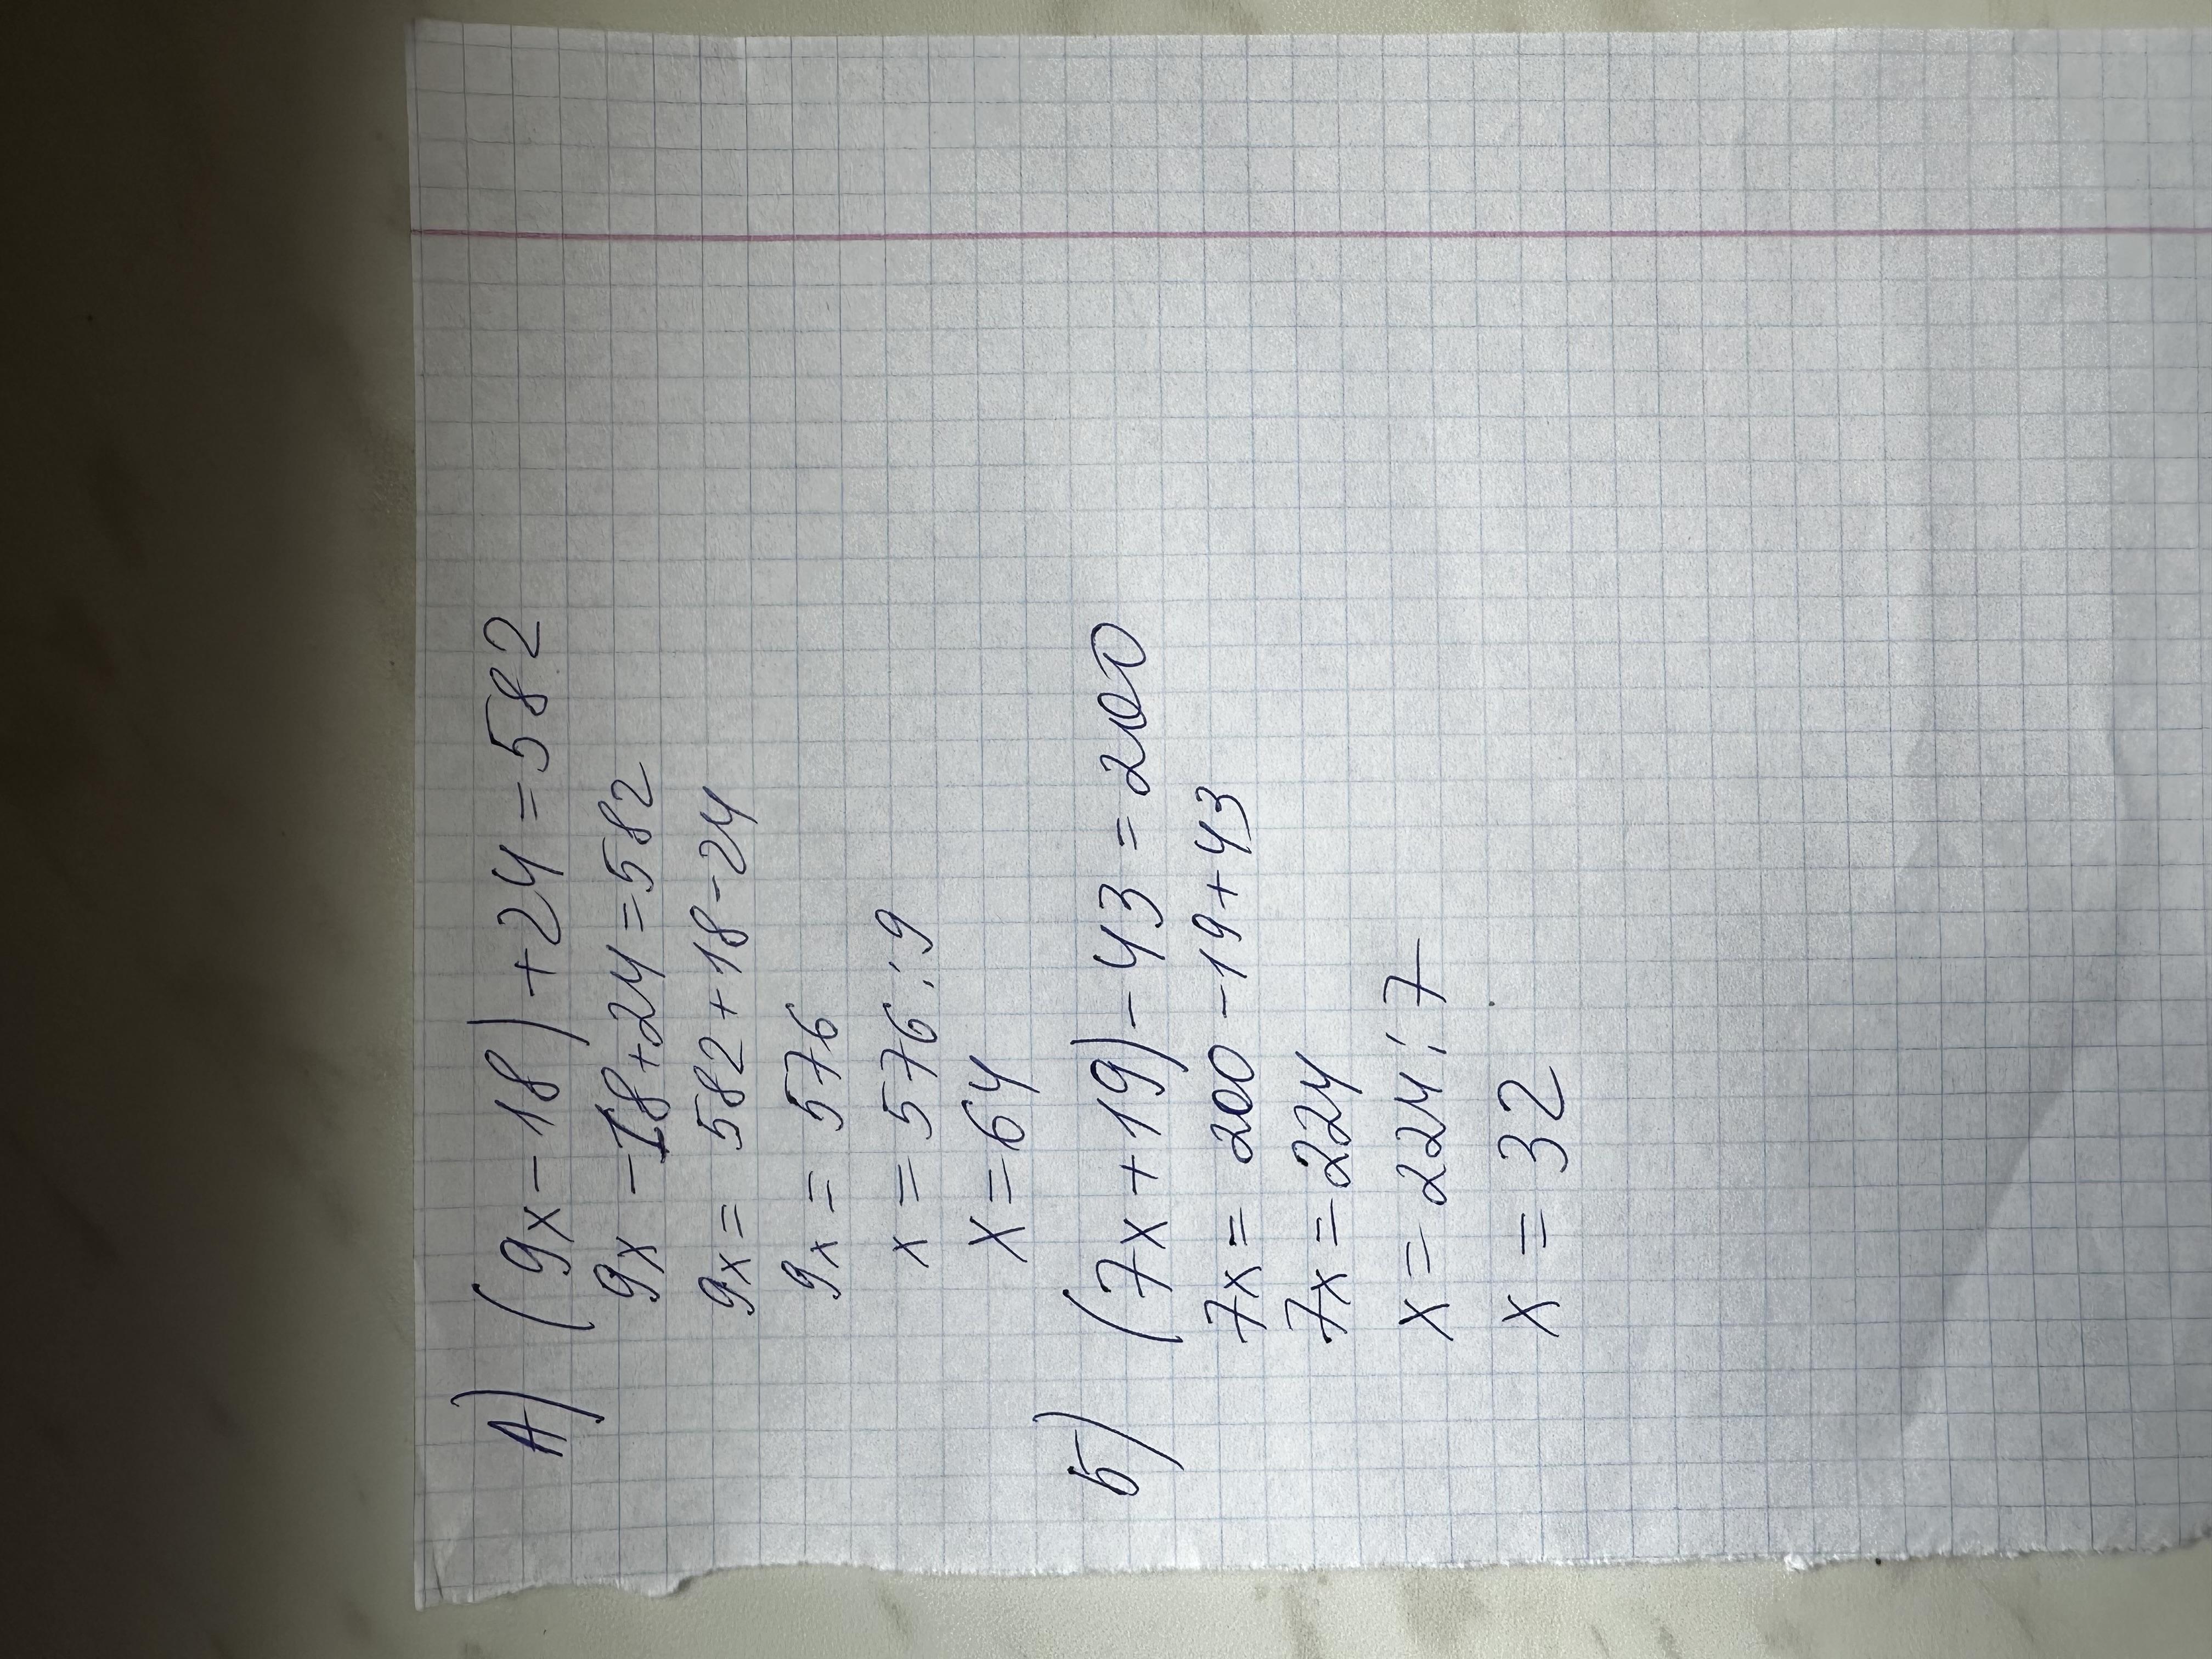 А) (9x-18)+24=582
9x-18+24=582
9x=582+18-24
9x=576
x=576:9
x=64
Б) (7x+19)-43=200
7x=200-19+43
7x=224
x=224:7
x=32